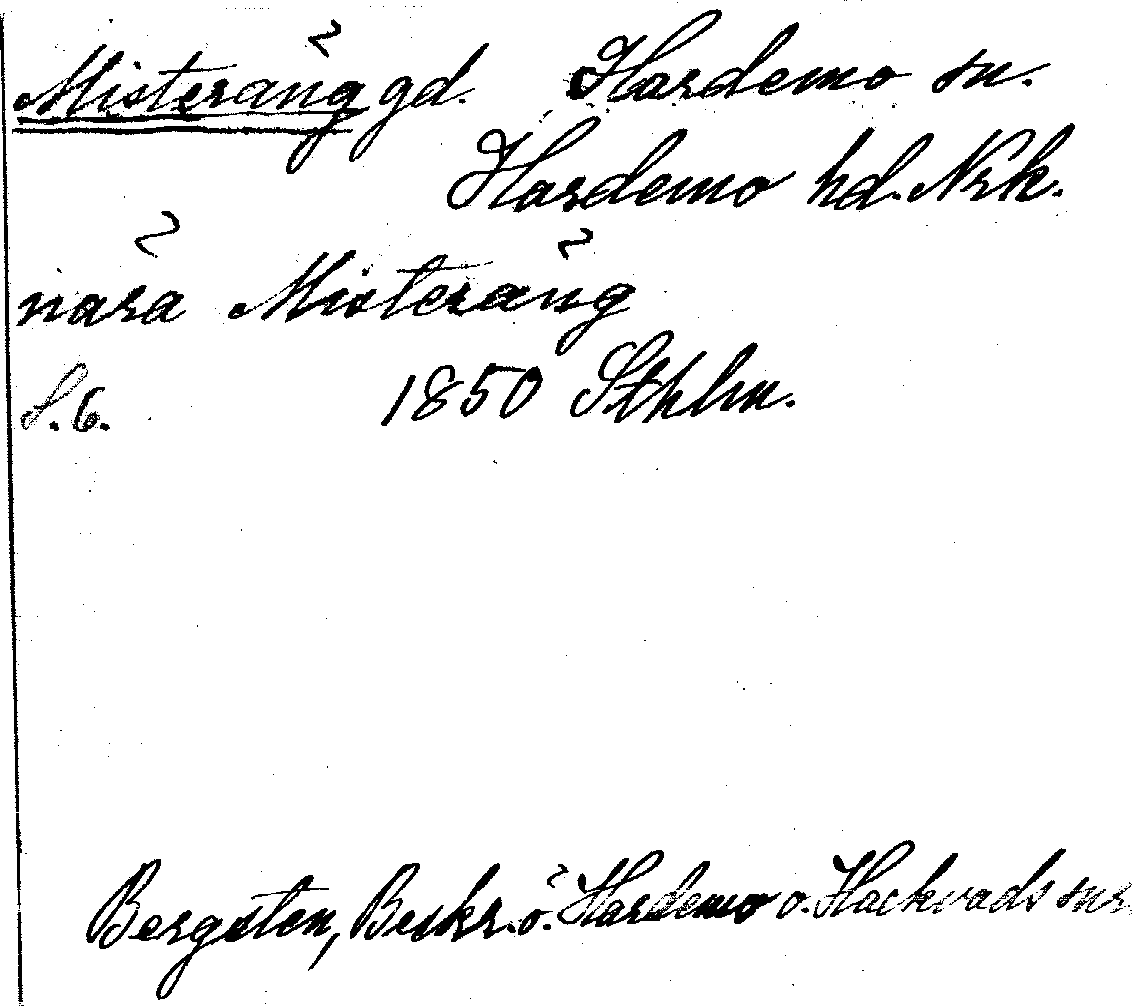 Misteräng gd. Hardemo sn.
Hardemo hd. Nrk.
nära Misteräng
S. 6. 1850 Sthlm.
Bergsten, Beskr. ö. Hardemo o. Hackvads snr